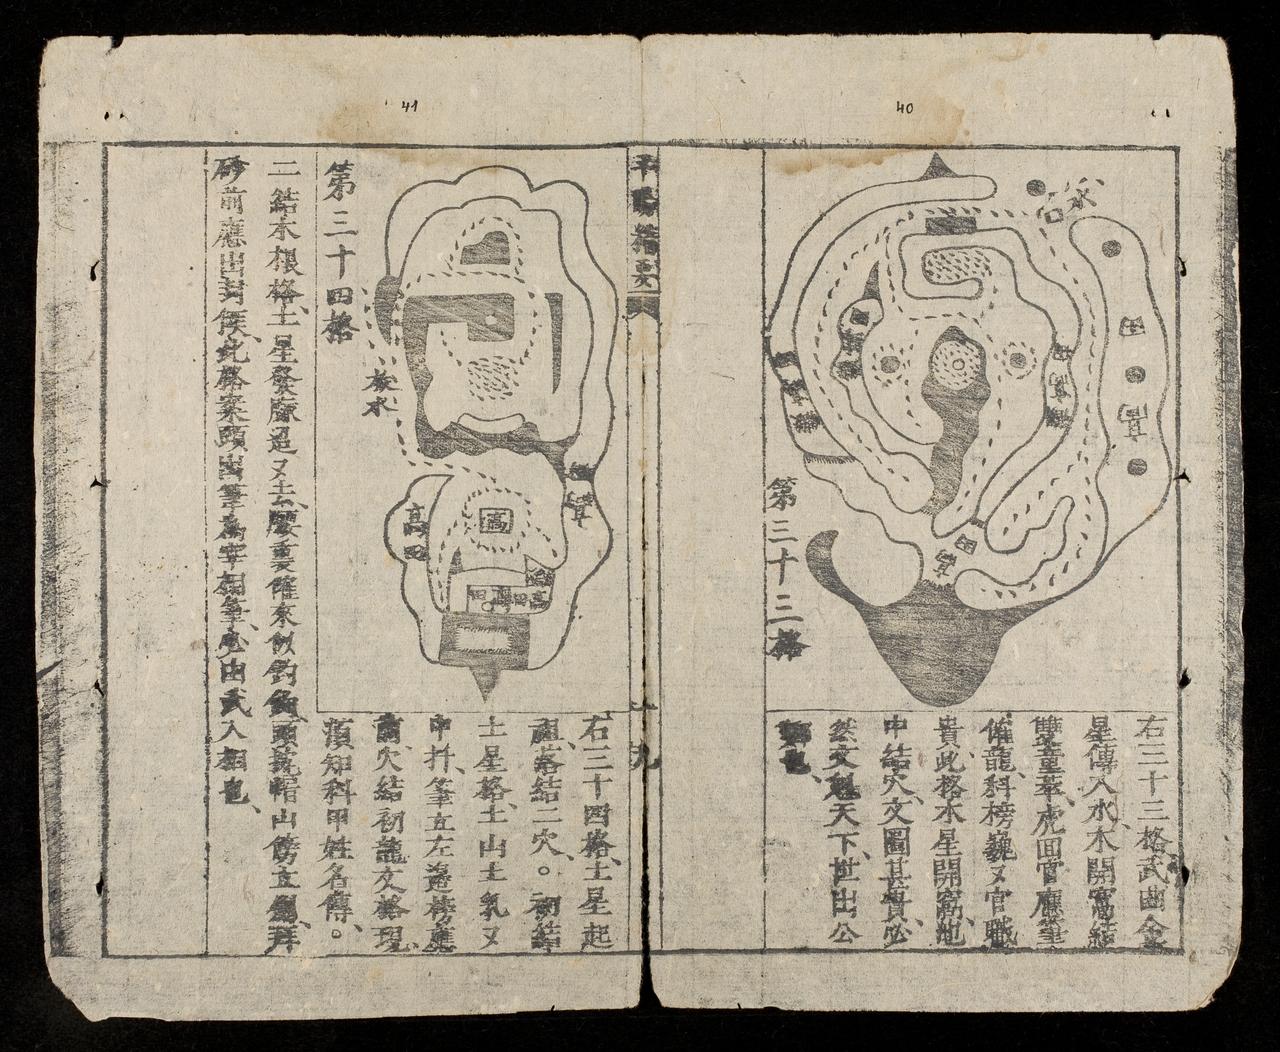 40
水口
田
田
高
田
高
第三十三格
右三十三格武曲金
星傳入水木開窩結
雙童萃虎回官應筆
催龍科榜巍又官職
貴此格水星開窩池
中結穴文圖甚貴必
然文魁天下世出公
卿也
平陽
十九
41
第三十四格
放水
高
高田
右三十四格土星起
祖落結二穴。初結
土星格土山土乳又
中扦筆立左邊榜應
前穴結初龍文格現
須知科甲姓名傳。
二結木根格土星發脉迢又去腰裏隨來似釣魚頭戴帽山傍立劍拜
砂前應出封侯此格案頭出筆爲宰相筆必由武入相也